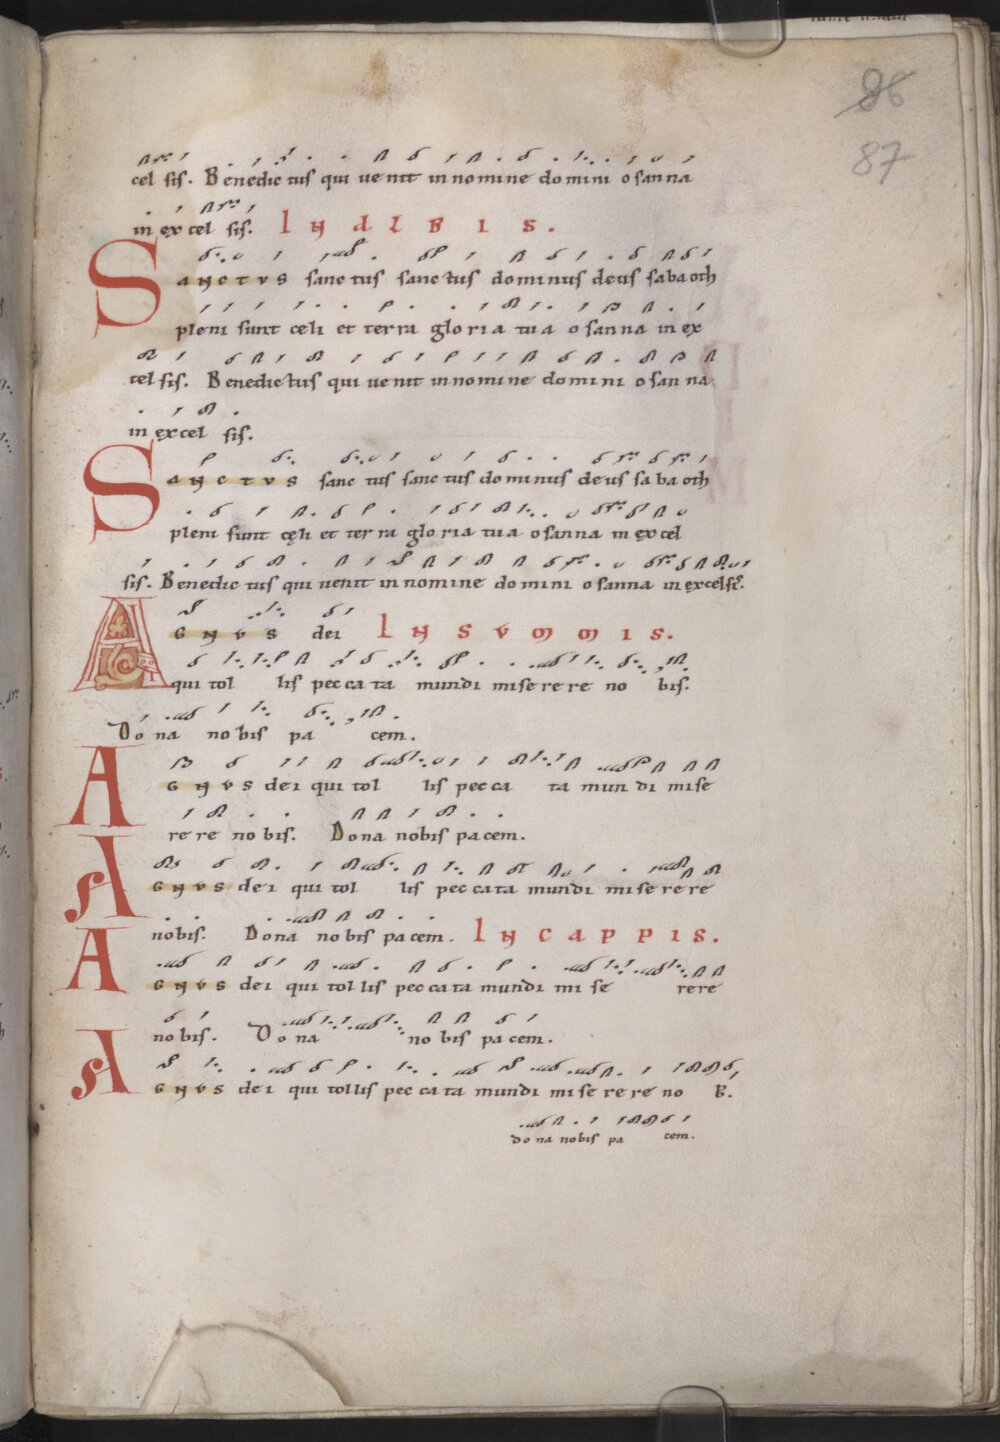 86
87
cel sis. Benedic tus qui uenit in nomine domini osanna
in excel sis. IN ALBIS.
SANCTVS sanc tus sanc tus dominus deus sabaoth
pleni sunt celi et terra gloria tua osanna in ex
cel sis. Benedictus qui uenit in nomine domini osanna
in excel sis.
SANCTVS sanc tus sanc tus dominus deus sabaoth
pleni sunt cęli et terra gloria tua osanna in excel
sis. Benedic tus qui uenit in nomine domini osanna in excelsis.
AGNVS dei IN SVMMIS.
qui tol lis pec ca ta mundi miserere no bis.
Dona nobis pa cem.
AGNVS dei qui tol lis pec ca ta mundi mise
rere nobis. Dona nobis pacem.
AGNVS dei qui tol lis peccata mundi miserere
nobis. Dona nobis pacem. IN CAPPIS.
AGNVS dei qui tollis peccata mundi mi se rere
nobis. Dona nobis pacem.
AGNVS dei qui tollis peccata mundi miserere no B.
dona nobis pa cem.